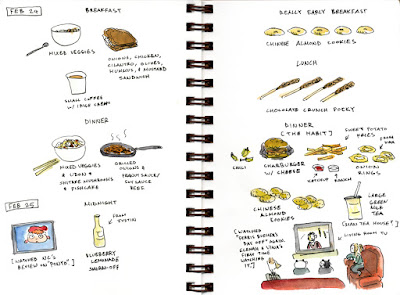 FEB 24
BREAKFAST
MIXED VEGGIES
ONIONS, CHICKEN,
CILANTRO, OLIVES,
HUMMUS, & MUSTARD
SANDWICH
SMALL COFFEE
W/
DINNER
MIXED VEGGIES
& UDON &
SHIITAKE MUSHROOMS
& FISHCAKE
GRILLED
ONIONS &
PEANUT SAUCE/
SOY SAUCE
BEEF
FEB 25
MIDNIGHT
[WATCHED NC'S
REVIEW ON "PONYO".]
FROM
DUSTIN
BLUEBERRY
LEMONADE
SMIRNOFF
REALLY EARLY BREAKFAST
CHINESE ALMOND COOKIES
LUNCH
CHOCOLATE CRUNCH POCKY
DINNER
[THE HABIT]
CHILI
CHARBURGER
W/ CHEESE
SWEET POTATO
FRIES
KETCHUP
RANCH
ONION
RINGS
CHINESE
ALMOND
COOKIES
LARGE
GREEN
MILK
TEA
[WATCHED
"FERRIS BUELLER'S
DAY OFF" AGAIN.
FIRST TIME
WATCHING
IT.]
LIVING ROOM TV